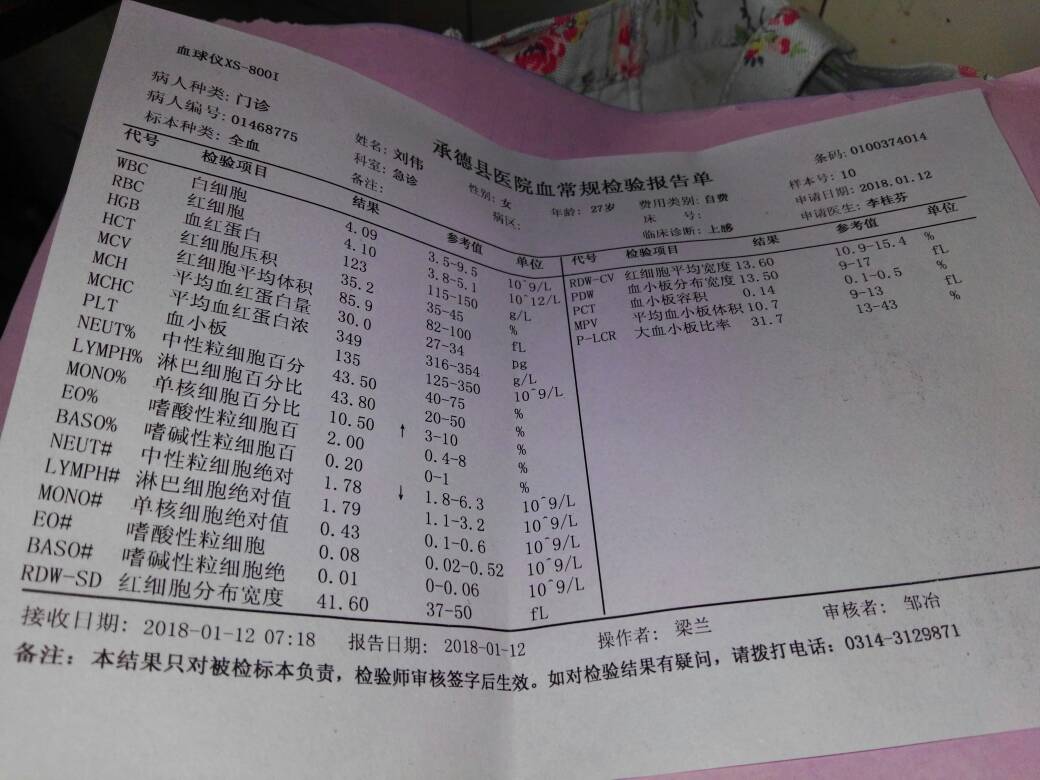 血球仪XS-800I
承德县医院血常规检验报告单
病人种类: 门诊 姓名: 刘伟 性别: 女 年龄: 27岁 费用类别: 自费 条码: 0100374014
病人编号: 01468775 科室: 急诊 病区: 床 号: 样本号: 10
标本种类: 全血 备注: 临床诊断: 上感 申请日期: 2018.01.12
申请医生: 李桂芬
代号 检验项目 结果 参考值 单位
WBC 白细胞 4.09 3.5-9.5 10^9/L
RBC 红细胞 4.10 3.8-5.1 10^12/L
HGB 血红蛋白 123 115-150 g/L
HCT 红细胞压积 35.2 35-45 %
MCV 红细胞平均体积 85.9 82-100 fL
MCH 平均血红蛋白量 30.0 27-34 pg
MCHC 平均血红蛋白浓 349 316-354 g/L
PLT 血小板 135 125-350 10^9/L
NEUT% 中性粒细胞百分 43.50 40-75 %
LYMPH% 淋巴细胞百分比 43.80 20-50 %
MONO% 单核细胞百分比 10.50 ↑ 3-10 %
EO% 嗜酸性粒细胞百 2.00 0.4-8 %
BASO% 嗜碱性粒细胞百 0.20 0-1 %
NEUT# 中性粒细胞绝对 1.78 ↓ 1.8-6.3 10^9/L
LYMPH# 淋巴细胞绝对值 1.79 1.1-3.2 10^9/L
MONO# 单核细胞绝对值 0.43 0.1-0.6 10^9/L
EO# 嗜酸性粒细胞 0.08 0.02-0.52 10^9/L
BASO# 嗜碱性粒细胞绝 0.01 0-0.06 10^9/L
RDW-SD 红细胞分布宽度 41.60 37-50 fL
代号 检验项目 结果 参考值 单位
RDW-CV 红细胞平均宽度 13.60 10.9-15.4 %
PDW 血小板分布宽度 13.50 9-17 fL
PCT 血小板容积 0.14 0.1-0.5 %
MPV 平均血小板体积 10.7 9-13 fL
P-LCR 大血小板比率 31.7 13-43 %
接收日期: 2018-01-12 07:18 报告日期: 2018-01-12 操作者: 梁兰 审核者: 邹冶
备注: 本结果只对被检标本负责，检验师审核签字后生效。如对检验结果有疑问，请拨打电话: 0314-3129871